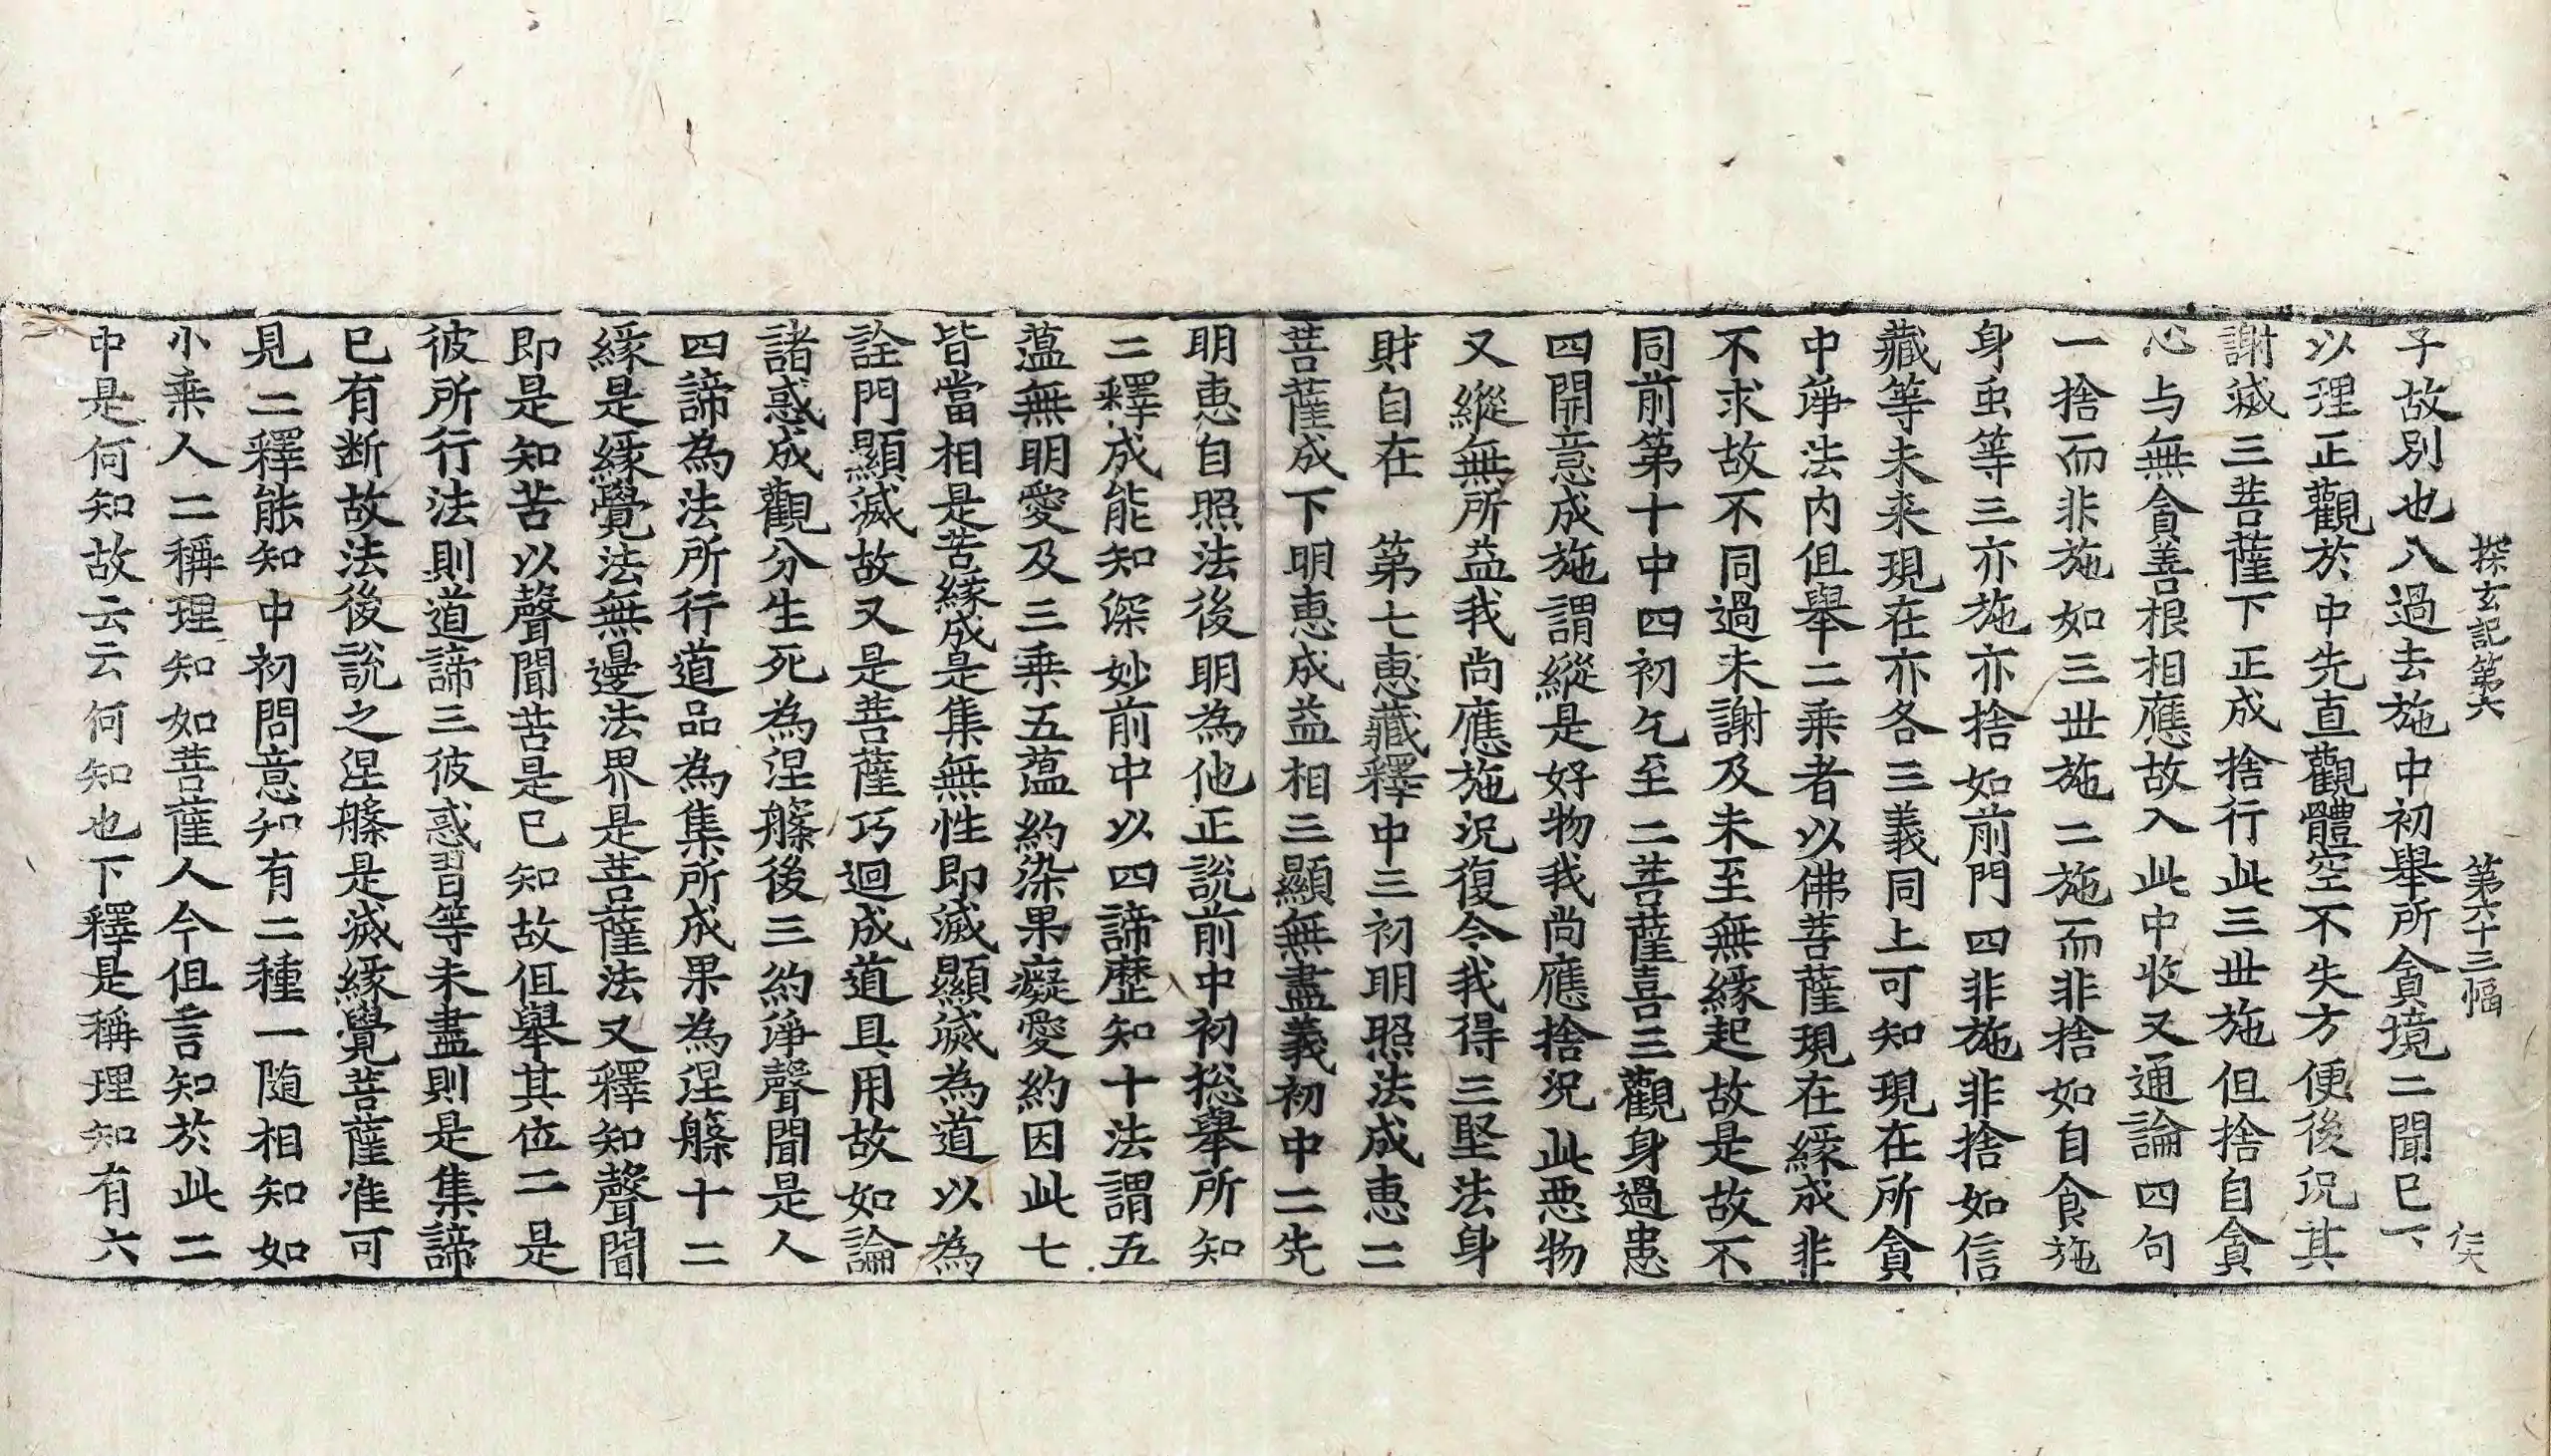 探玄記第六 第六十三幅
子故別也八過去施中初舉所貪境二聞已下
以理正觀於中先直觀體空不失方便後況其
謝滅三菩薩下正成捨行此三世施但捨自貪
心与無貪善根相應故入此中收又通論四句
一捨而非施如三世施二施而非捨如自食施
身虫等三亦施亦捨如前門四非施非捨如信
藏等未来現在亦各三義同上可知現在所貪
中諍法内但舉二乘者以佛菩薩現在緣成非
不求故不同過未謝及未至無緣起故是故不
同前第十中四初乞至二菩薩喜三觀身過患
四開意成施謂縱是好物我尚應捨況此惡物
又縱無所益我尚應施況復令我得三堅法身
財自在 第七恵藏釋中三初明照法成恵二
菩薩成下明恵成益相三顯無盡義初中二先
明恵自照法後明為他正說前中初捴舉所知
二釋成能知深妙前中以四諦歷知十法謂五
蘊無明愛及三乘五蘊約染果癡愛約因此七
皆當相是苦緣成是集無性即滅顯滅為道以為
詮門顯滅故又是菩薩巧迴成道具用故如論
諸惑成觀分生死為涅槃後三約諍聲聞是人
四諦為法所行道品為集所成果為涅槃十二
緣是緣覺法無邊法界是菩薩法又釋知聲聞
即是知苦以聲聞苦是已知故但舉其位二是
彼所行法則道諦三彼惑習等未盡則是集諦
已有断故法後説之涅槃是滅緣覺菩薩准可
見二釋能知中初問意知有二種一随相知如
小乘人二稱理知如菩薩人今但言知於此二
中是何知故云云何知也下釋是稱理知有六